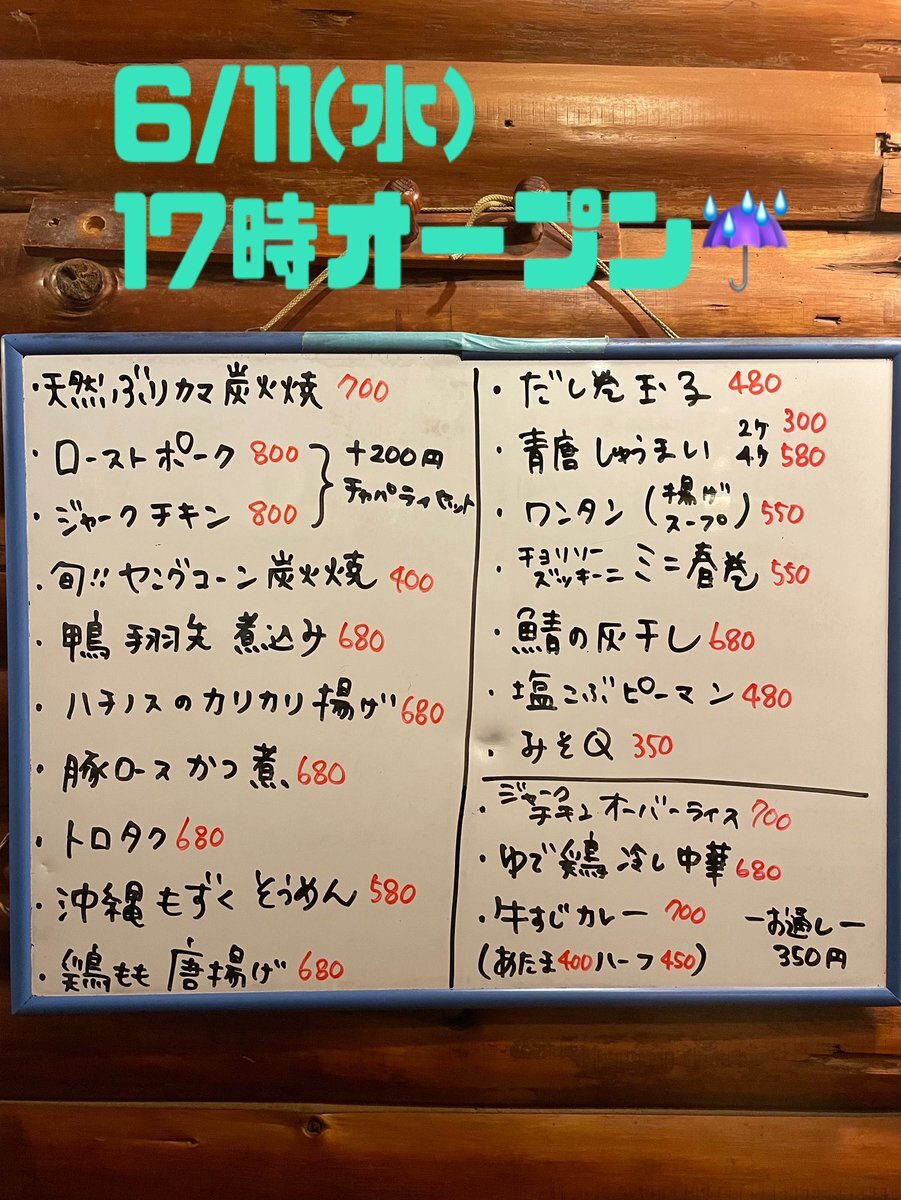 6/11(水)
17時オープン☔
・天然ぶりカマ炭火焼 700
・ローストポーク 800
・ジャークチキン 800
+200円
チャパティセット
・旬!!ヤングコーン炭火焼 400
・鴨手羽先煮込み 680
・ハチノスのカリカリ揚げ 680
・豚ロースかつ煮 680
・トロタク 680
・沖縄もずくそうめん 580
・鶏もも唐揚げ 680
・だし巻玉子 480
・青唐しゅうまい 2ケ 300
4ケ 580
・ワンタン(揚げ スープ) 550
・チョリソーズッキーニミニ春巻 550
・鯖の灰干し 680
・塩こぶピーマン 480
・みそQ 350
・ジャークチキンオーバーライス 700
・ゆで鶏冷し中華 680
・牛すじカレー 700
(あたま400ハーフ450)
ーお通しー
350円